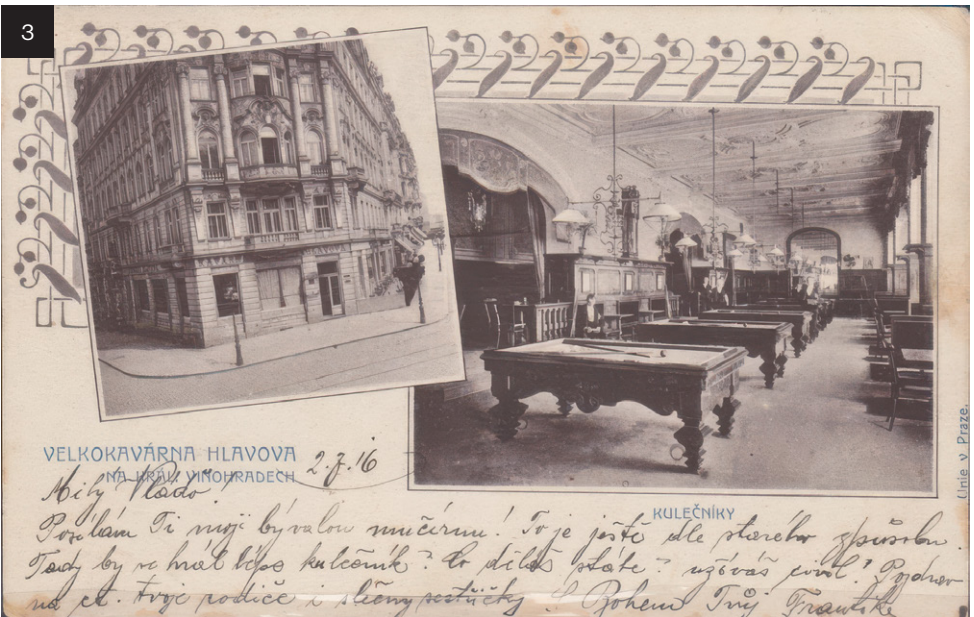 3
VELKOKAVÁRNA HLAVOVA
NA KRÁL. VINOHRADECH
2.7.16
KULEČNÍKY
Unie v Praze.
Milý Vláďo!
Posílám Ti moji bývalou mučírnu! To je ještě dle starého způsobu.
Tady by se hrál lépe kulečník? Co děláš stále? užíváš Pozdrav
na ct. tvoje rodiče i slečny sestřičky S Bohem Tvůj Frantík